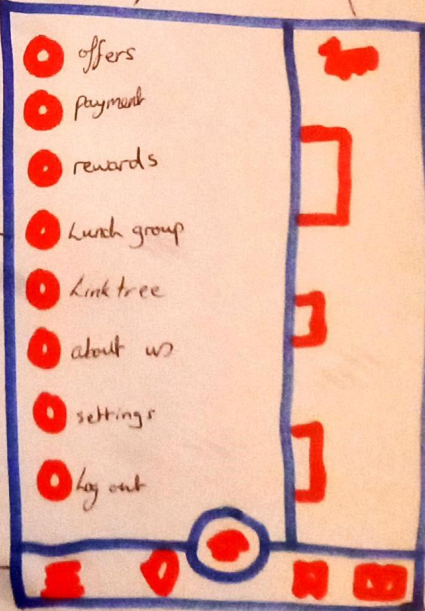 offers
payment
rewards
Lunch group
Link tree
about us
settings
Log out